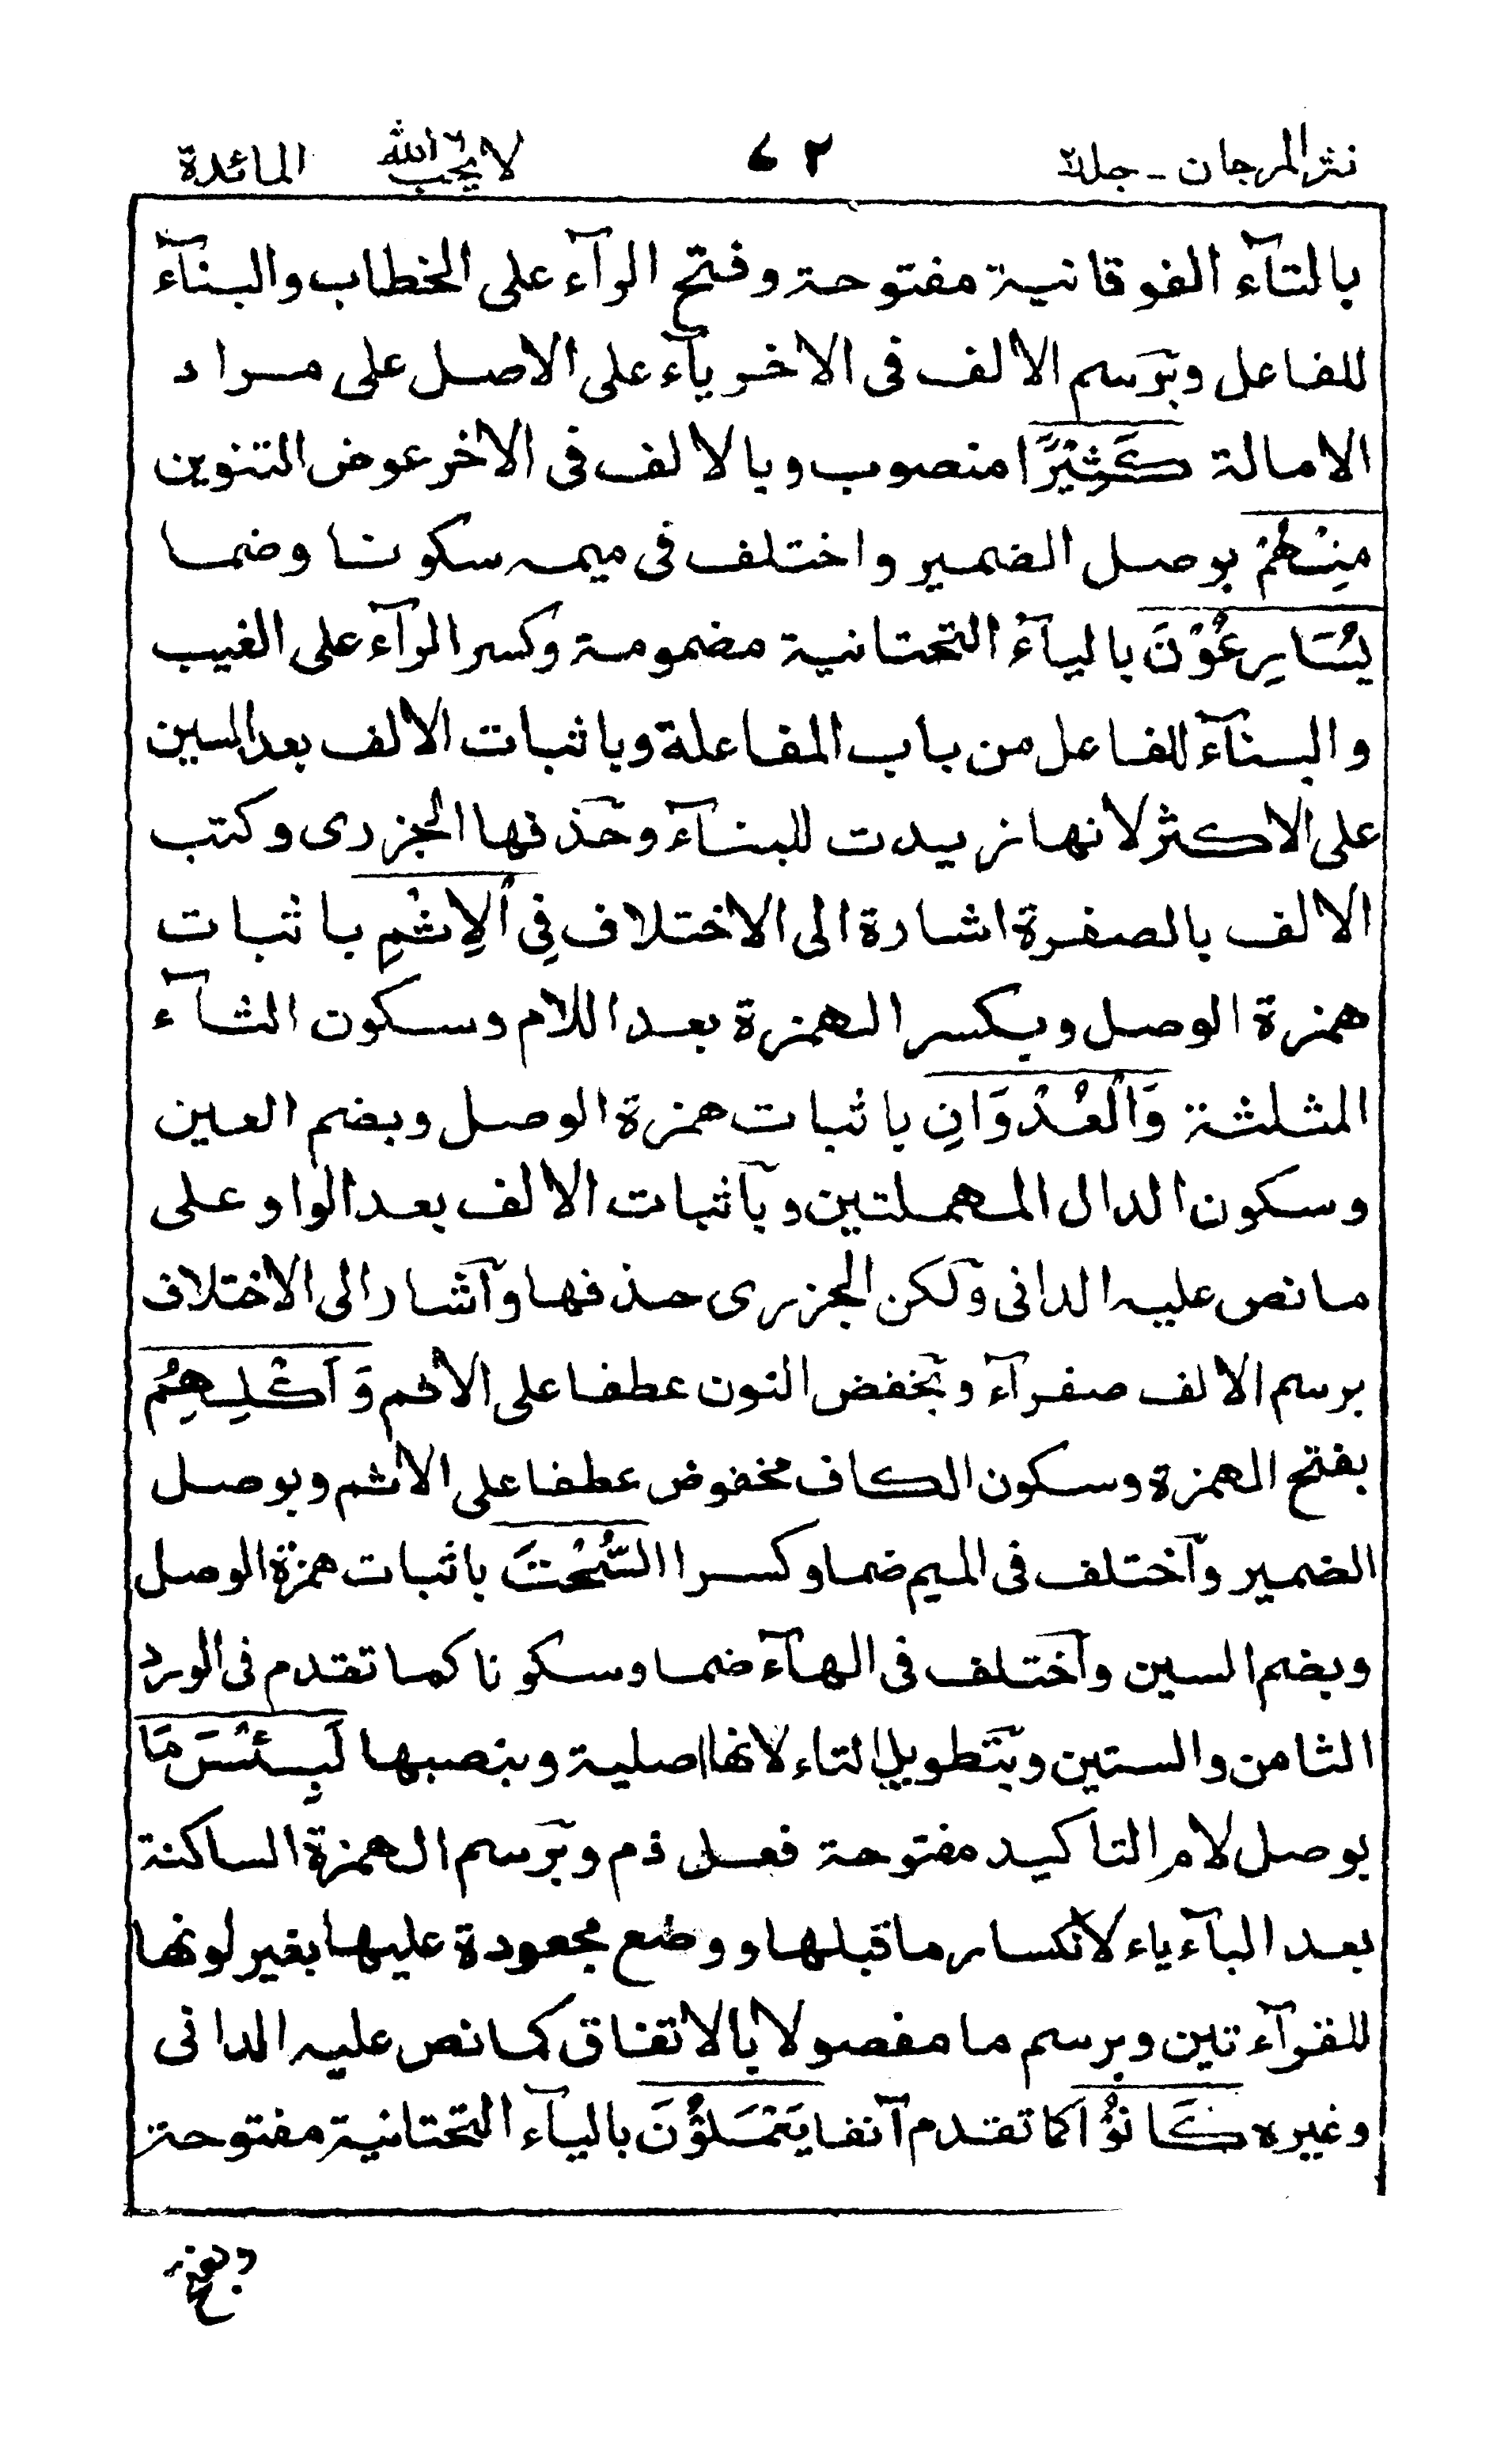 نثر المرجان - جلد ٢ ٤٢ لا يحب الله المائدة
بالتآء الفوقانية مفتوحة وفتح الرآء على الخطاب والبنآء
للفاعل وبرسم الالف فى الاخر يآء على الاصل على مراد
الامالة كَثِيْرًا منصوب وبالالف فى الاخر عوض التنوين
مِنْهُمْ بوصل الضمير واختلف فى ميمه سكونا وضما
يُسَارِعُوْنَ باليآء التحتانية مضمومة وكسر الرآء على الغيب
والبنآء للفاعل من باب المفاعلة وباثبات الالف بعد السين
على الاكثر لانها زيدت للبنآء وحذفها الجزرى وكتب
الالف بالصفرة اشارة الى الاختلاف فِى الْاِثْمِ باثبات
همزة الوصل وبكسر الهمزة بعد اللام وسكون الثآء
المثلثة وَالْعُدْوَانِ باثبات همزة الوصل وبضم العين
وسكون الدال المهملتين وباثبات الالف بعد الواو على
ما نص عليه الدانى ولكن الجزرى حذفها واشار الى الاختلاف
برسم الالف صفرآء وبخفض النون عطفا على الاثم وَاَكْلِهِمُ
بفتح الهمزة وسكون الكاف مخفوض عطفا على الاثم وبوصل
الضمير واختلف فى الميم ضما وكسرا السُّحْتَ باثبات همزة الوصل
وبضم السين واختلف فى الهآء ضما وسكونا كما تقدم فى الورد
الثامن والستين وبتطويل التاء لانها اصلية وبنصبها لَبِئْسَ مَا
بوصل لام التاكيد مفتوحة فعل ذم وبرسم الهمزة الساكنة
بعد البآء ياء لانكسار ما قبلها ووضع مجعودة عليها بغير لونها
للقرآءتين وبرسم ما مفصولا بالاتفاق كما نص عليه الدانى
وغيره كَانُوْا كما تقدم آنفا يَعْمَلُوْنَ باليآء التحتانية مفتوحة
وبفتح